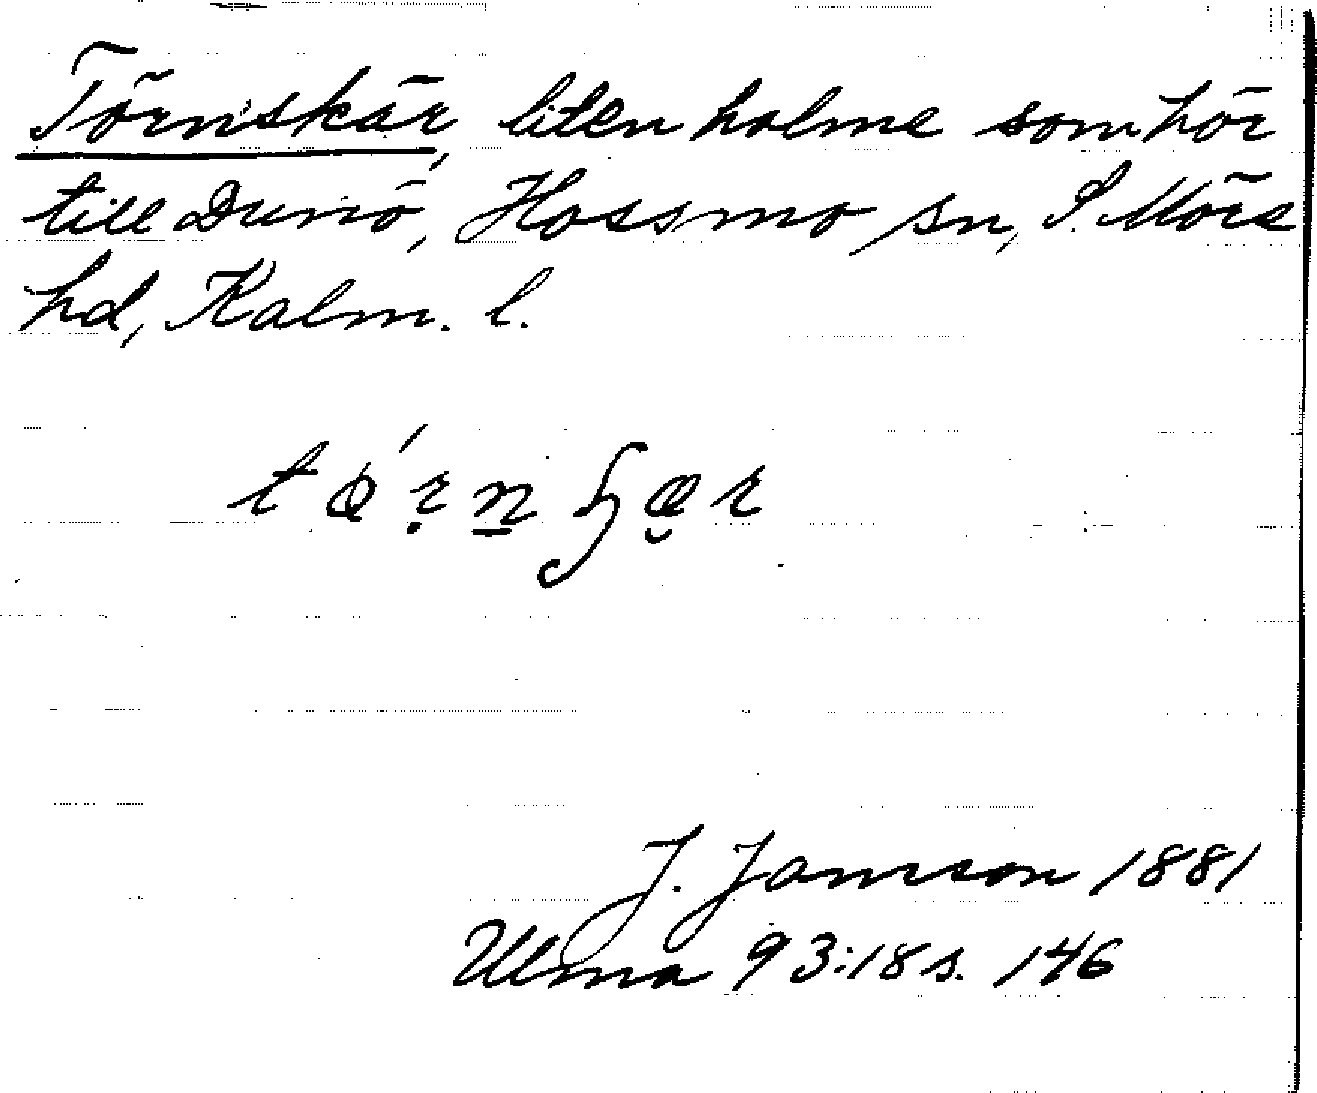 Törnskär, liten holme som hör
till Dunö, Hossmo sn, S. Möre
hd, Kalm. l.
J. Janson 1881
Ulma 93:18 s. 146